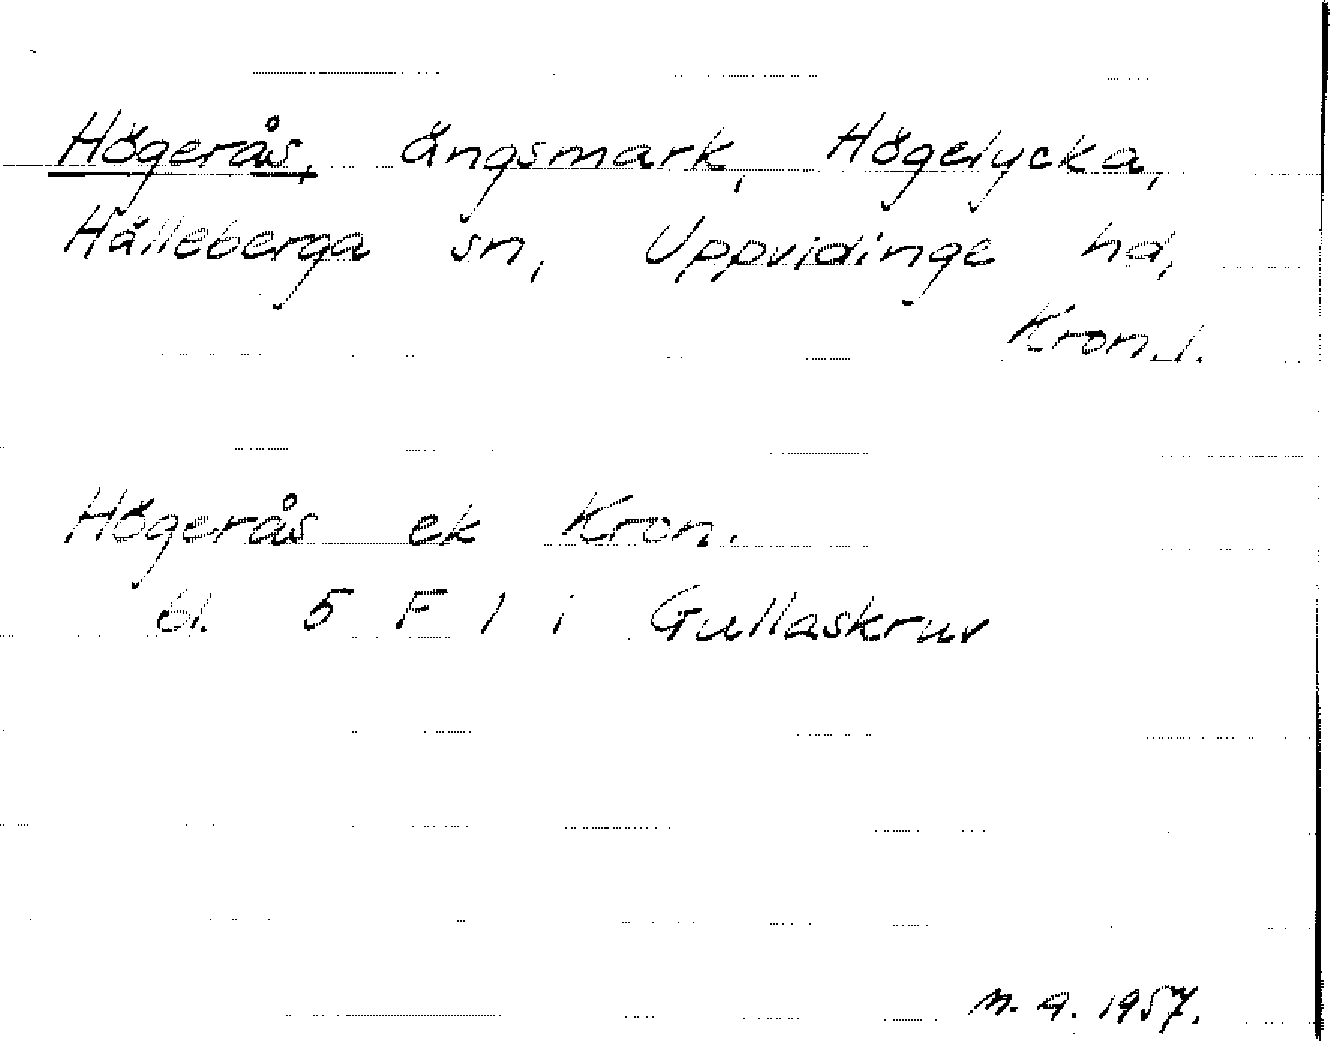 Högerås, ängsmark, Högelycka,
Hälleberga sn, Uppvidinge hd,
Kron. l.
Högerås ek Kron.
bl. 5 F 1 i Gullaskruv
M. A. 1957.